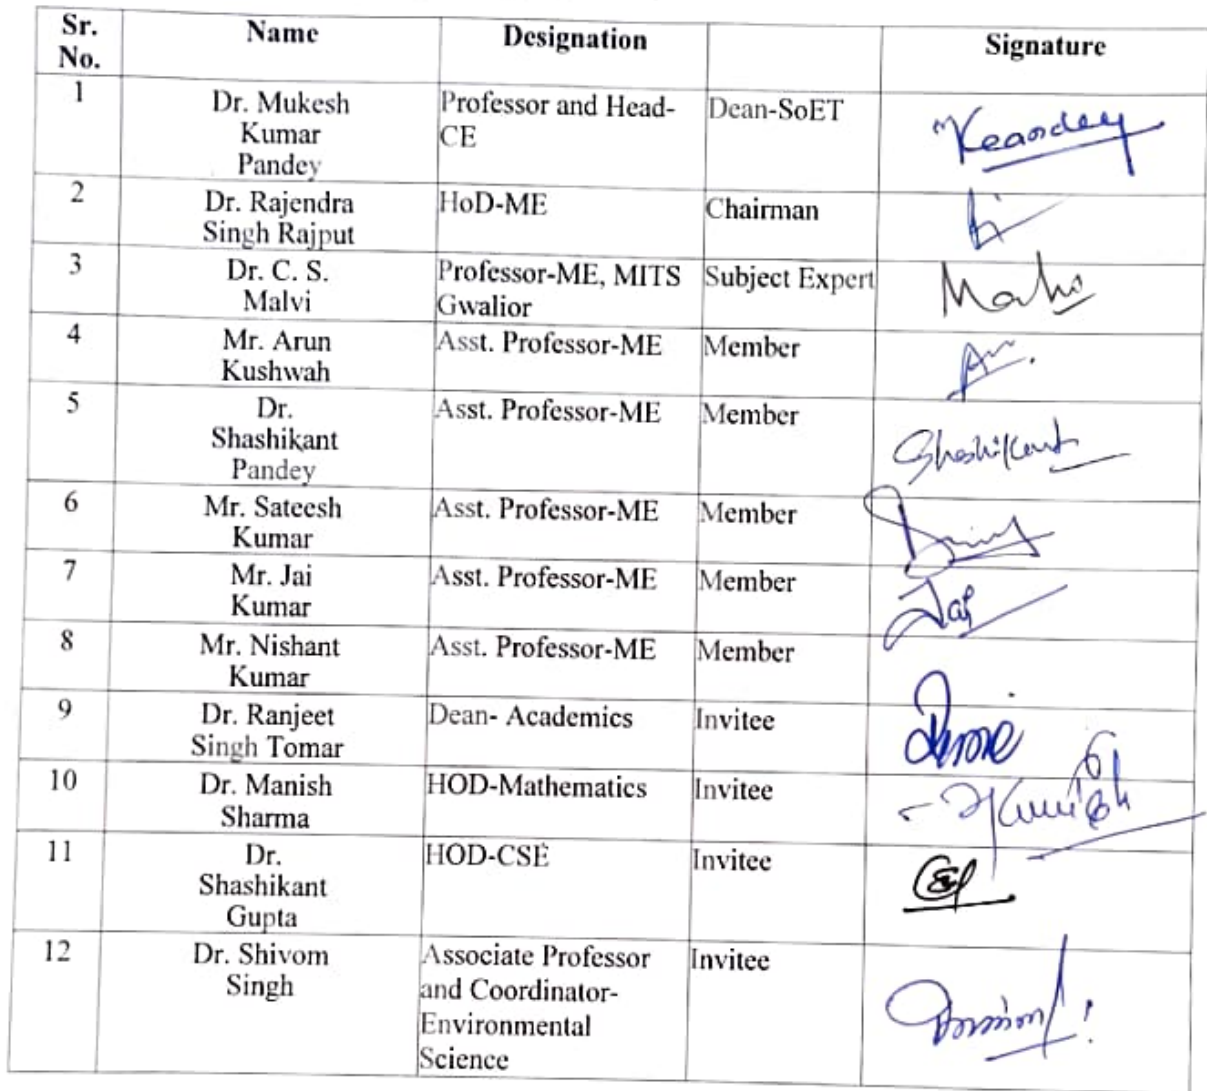 Sr. No. Name Designation Signature
1 Dr. Mukesh Kumar Pandey Professor and Head-CE Dean-SoET
2 Dr. Rajendra Singh Rajput HoD-ME Chairman
3 Dr. C. S. Malvi Professor-ME, MITS Gwalior Subject Expert
4 Mr. Arun Kushwah Asst. Professor-ME Member
5 Dr. Shashikant Pandey Asst. Professor-ME Member Shashikant
6 Mr. Sateesh Kumar Asst. Professor-ME Member
7 Mr. Jai Kumar Asst. Professor-ME Member Jai
8 Mr. Nishant Kumar Asst. Professor-ME Member
9 Dr. Ranjeet Singh Tomar Dean- Academics Invitee
10 Dr. Manish Sharma HOD-Mathematics Invitee
11 Dr. Shashikant Gupta HOD-CSE Invitee
12 Dr. Shivom Singh Associate Professor and Coordinator-Environmental Science Invitee